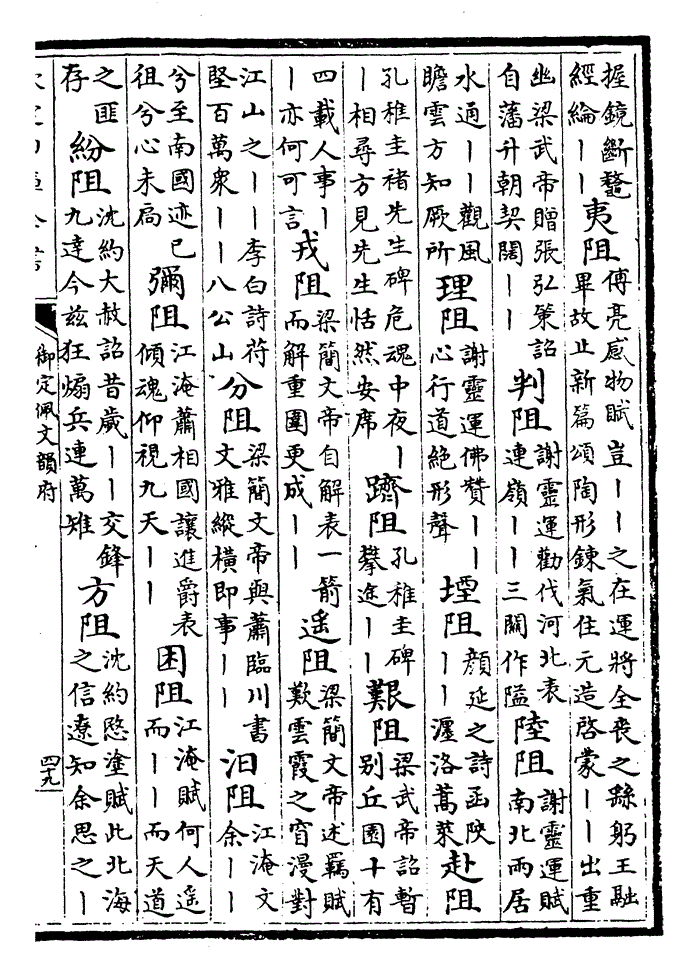 握鏡斷鼇經綸丨丨 夷阻 傅亮感物賦豈丨丨之在運將全喪之繇躬王融畢故止新篇頌陶形鍊氣住元造啓蒙丨丨出重
幽梁武帝贈張弘策詔自藩升朝契闊丨丨 判阻 謝靈運勸伐河北表連嶺丨丨三關作隘 陸阻 謝靈運賦南北兩居
水通丨丨觀風瞻雲方知厥所 理阻 謝靈運佛贊丨丨心行道絶形聲 堙阻 顔延之詩函陝丨丨瀍洛蒿萊 赴阻
孔稚圭褚先生碑危魂中夜丨丨相尋方見先生恬然安席 躋阻 孔稚圭碑攀途丨丨 艱阻 梁武帝詔暫别丘園十有
四載人事丨丨亦何可言 戎阻 梁簡文帝自解表一箭而解重圍更成丨丨 遥阻 梁簡文帝述羇賦歎雲霞之窅漫對
江山之丨丨李白詩苻堅百萬衆丨丨八公山 分阻 梁簡文帝與蕭臨川書文雅縱橫即事丨丨 汨阻 江淹文余丨丨
兮至南國迹已徂兮心未扃 彌阻 江淹蕭相國讓進爵表傾魂仰視九天丨丨 困阻 江淹賦何人遥而丨丨而天道
之匪存 紛阻 沈約大赦詔昔歲丨丨交鋒九逵今兹狂煽兵連萬雉 方阻 沈約愍塗賦此北海之信遼知余思之丨
御定佩文韻府
四十九